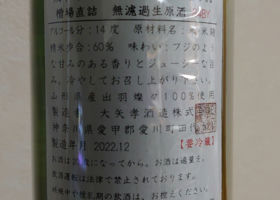 槽場直詰 無濾過生原酒
アルコール分:14度 原材料名:米、米麹
精米歩合:60% 味わい:フジのよう
な甘みのある香りとジューシーな旨
み。冷やしてお召し上がり下さい。
山形県産出羽燦々100%使用
製造者 大矢孝酒造株式
神奈川県愛甲郡愛川町田代
製造年月 2022.12 【要冷蔵】
お酒は20歳になってから。お酒は適量を。
飲酒運転は法律で禁止されております。
妊娠中や授乳期の飲酒は、お控えください。